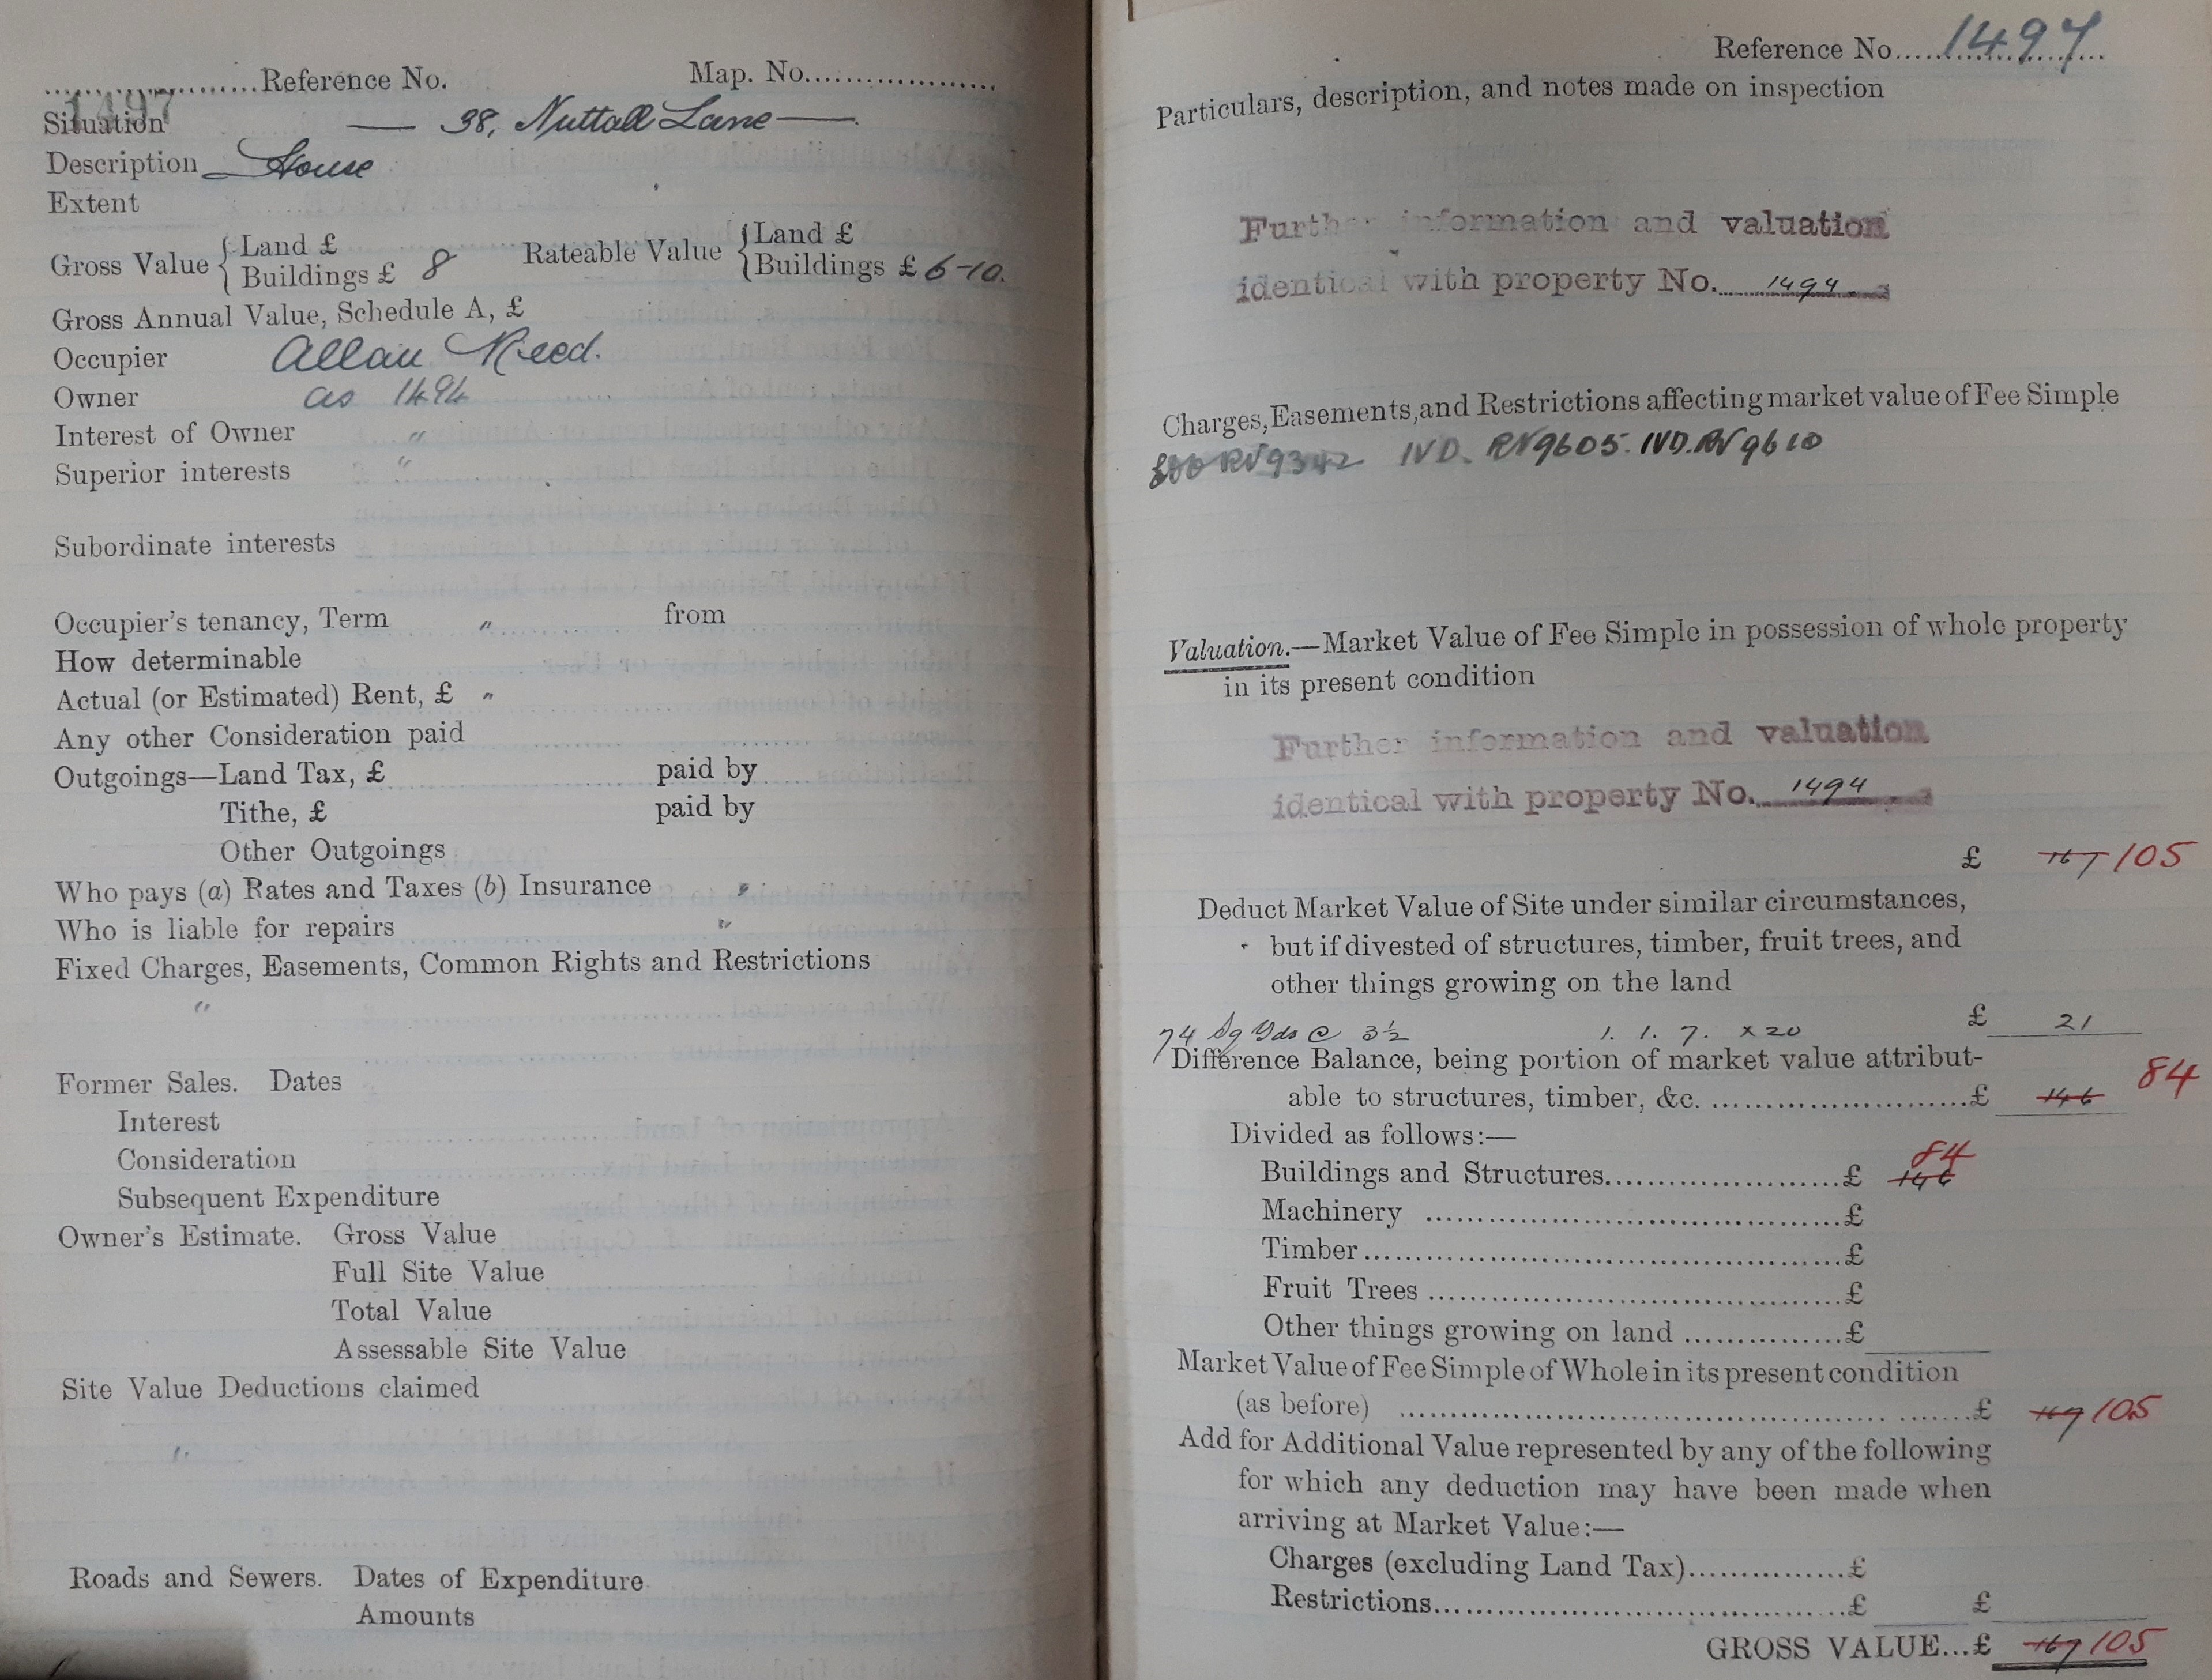 ..................Reference No. Map. No..................
1497
Situation — 38, Nuttall Lane —.
Description House
Extent
Gross Value { Land £
Buildings £ 8 Rateable Value { Land £
Buildings £ 6-10.
Gross Annual Value, Schedule A, £
Occupier Allan Reed.
Owner as 1494
Interest of Owner "
Superior interests "
Subordinate interests
Occupier's tenancy, Term " from
How determinable
Actual (or Estimated) Rent, £ "
Any other Consideration paid
Outgoings—Land Tax, £ paid by
Tithe, £ paid by
Other Outgoings
Who pays (a) Rates and Taxes (b) Insurance "
Who is liable for repairs "
Fixed Charges, Easements, Common Rights and Restrictions
"
Former Sales. Dates
Interest
Consideration
Subsequent Expenditure
Owner's Estimate. Gross Value
Full Site Value
Total Value
Assessable Site Value
Site Value Deductions claimed
"
Roads and Sewers. Dates of Expenditure
Amounts
Reference No. 1497
Particulars, description, and notes made on inspection
Further information and valuation
identical with property No. 1494
Charges, Easements, and Restrictions affecting market value of Fee Simple
RV9342 IVD. RV9605. IVD. RV9610
Valuation.—Market Value of Fee Simple in possession of whole property
in its present condition
Further information and valuation
identical with property No. 1494
£ 167 105
Deduct Market Value of Site under similar circumstances,
but if divested of structures, timber, fruit trees, and
other things growing on the land
74 Sq Yds @ 3½ 1. 1. 7. x 20 £ 21
Difference Balance, being portion of market value attribut-
able to structures, timber, &c. ..............................£ 146 84
Divided as follows:—
Buildings and Structures..........................£ 146 84
Machinery ..............................................£
Timber.....................................................£
Fruit Trees ..............................................£
Other things growing on land ..................£
Market Value of Fee Simple of Whole in its present condition
(as before) ..............................................................£ 167 105
Add for Additional Value represented by any of the following
for which any deduction may have been made when
arriving at Market Value:—
Charges (excluding Land Tax)................£
Restrictions..............................................£ £
GROSS VALUE...£ 167 105